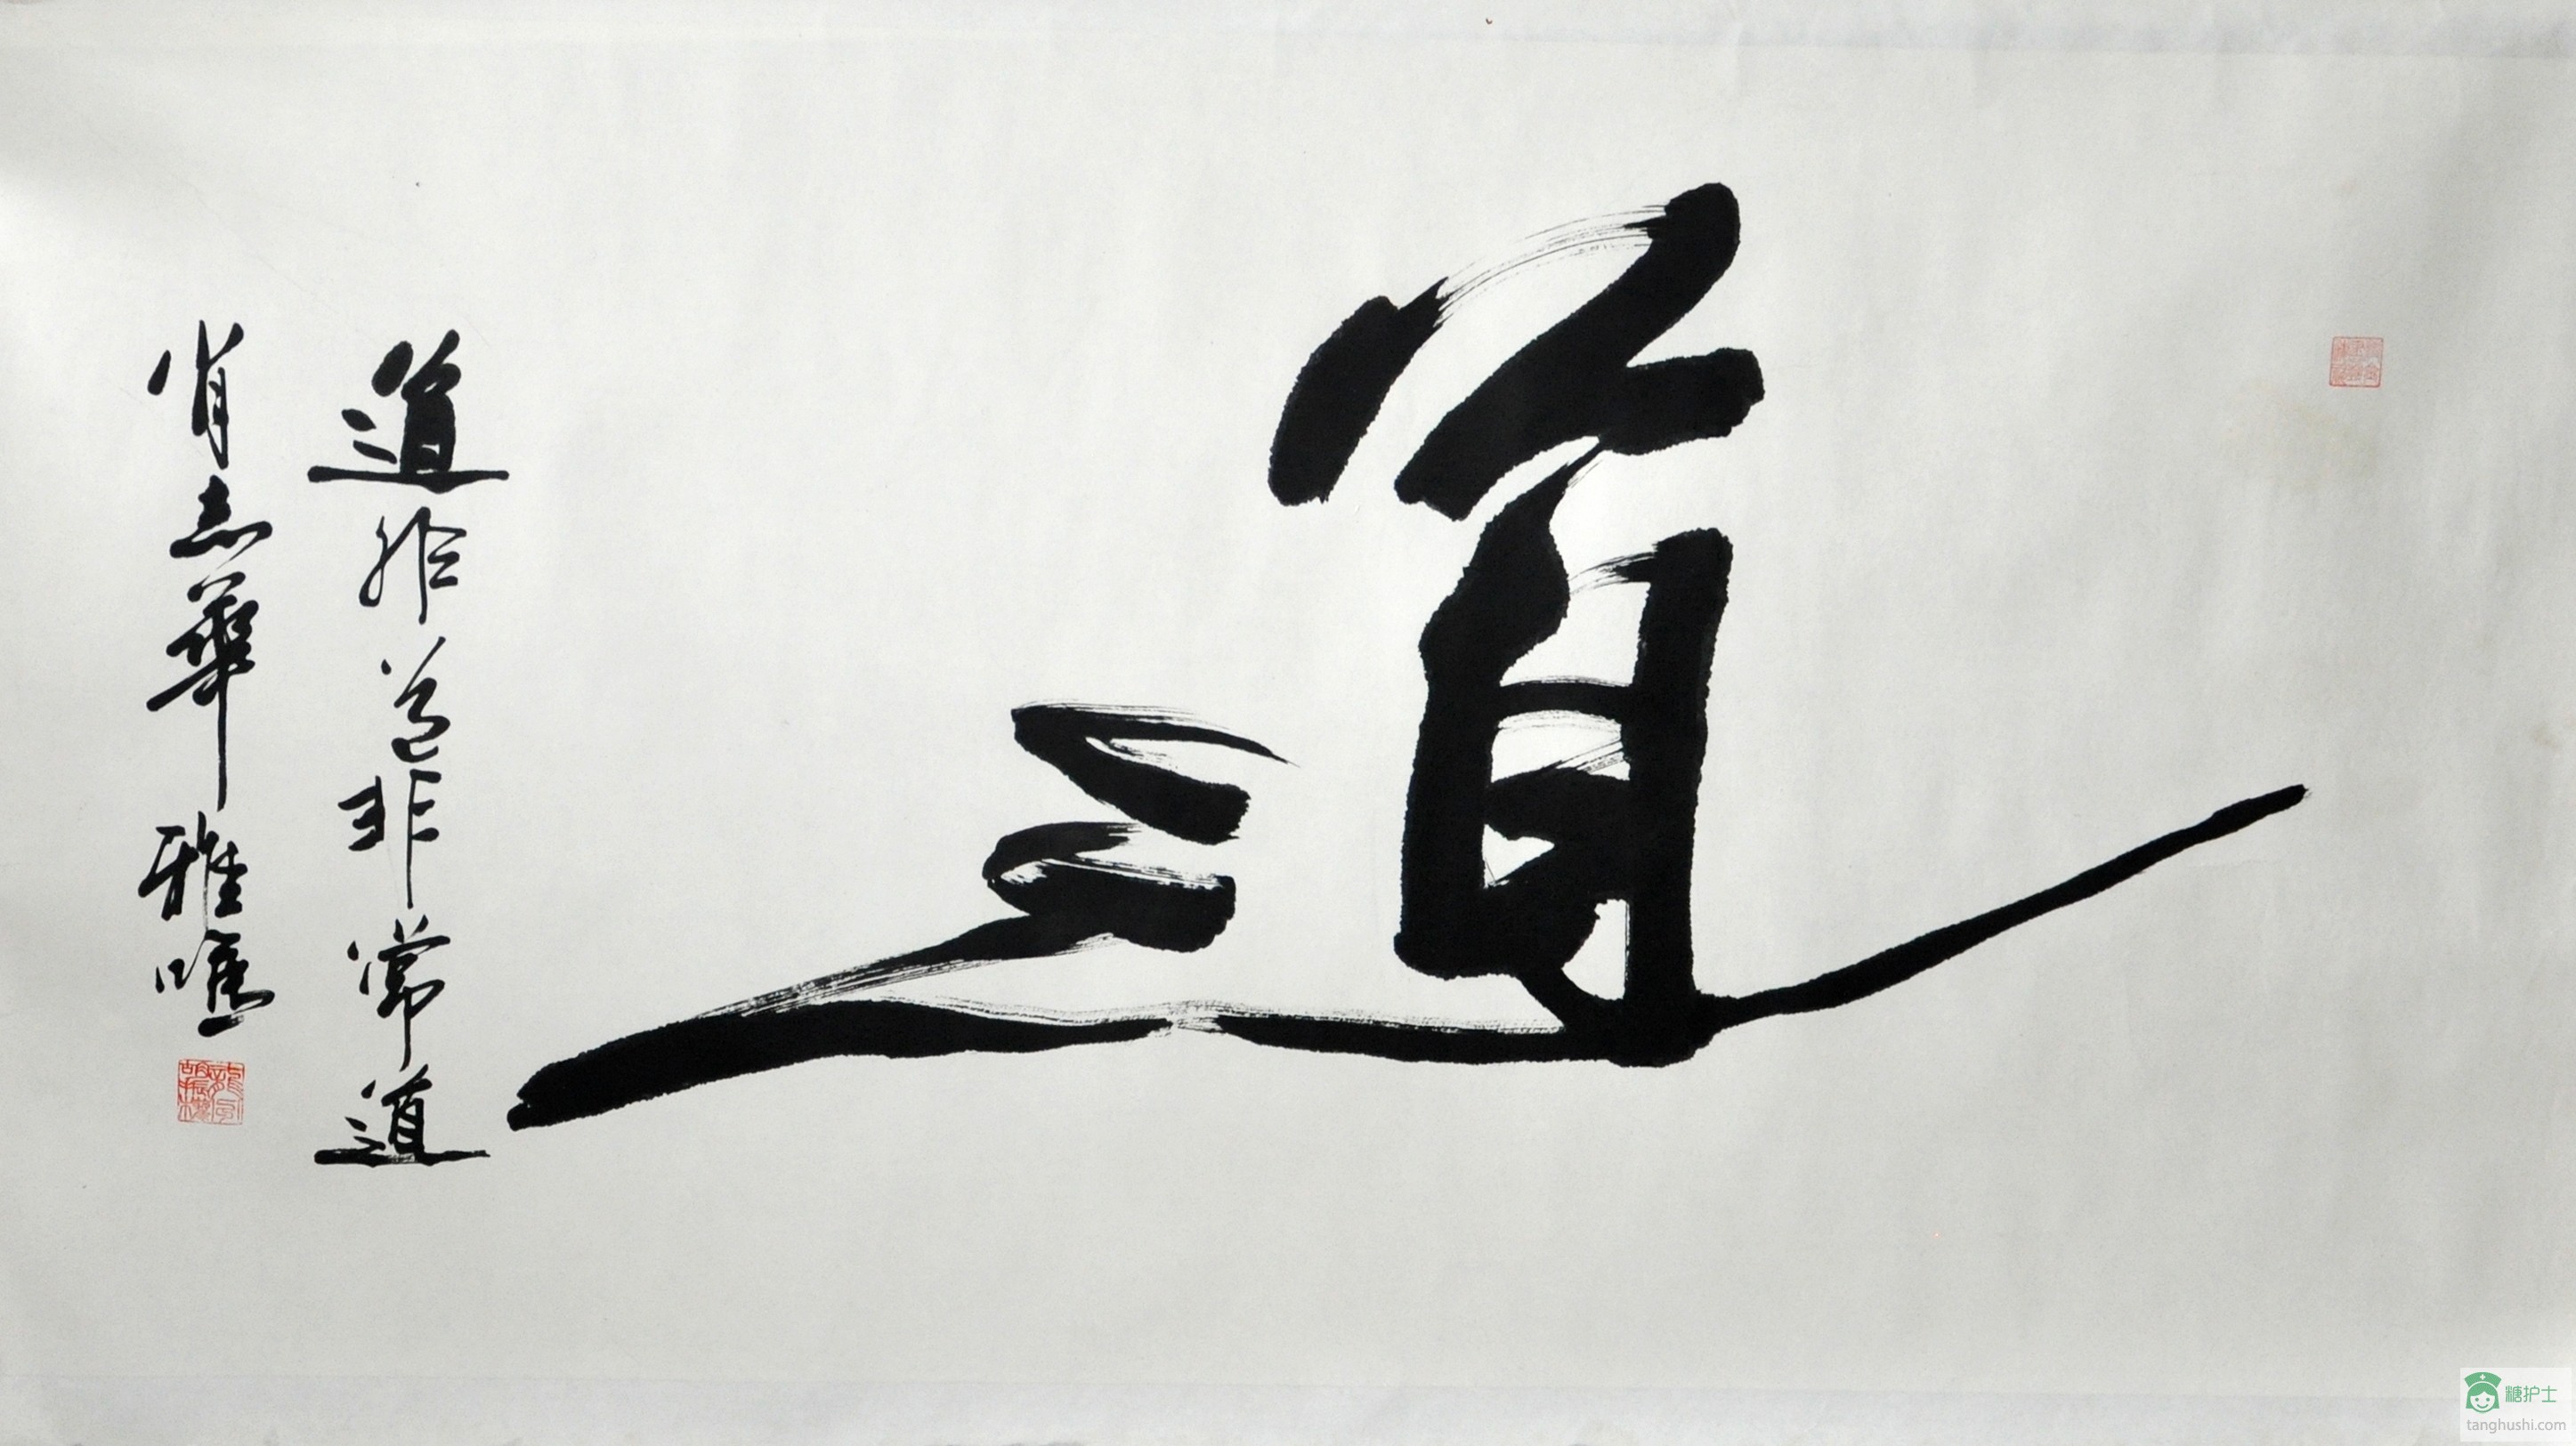 道
道非道非常道
肖志華雅嘱
糖护士
tanghushi.com